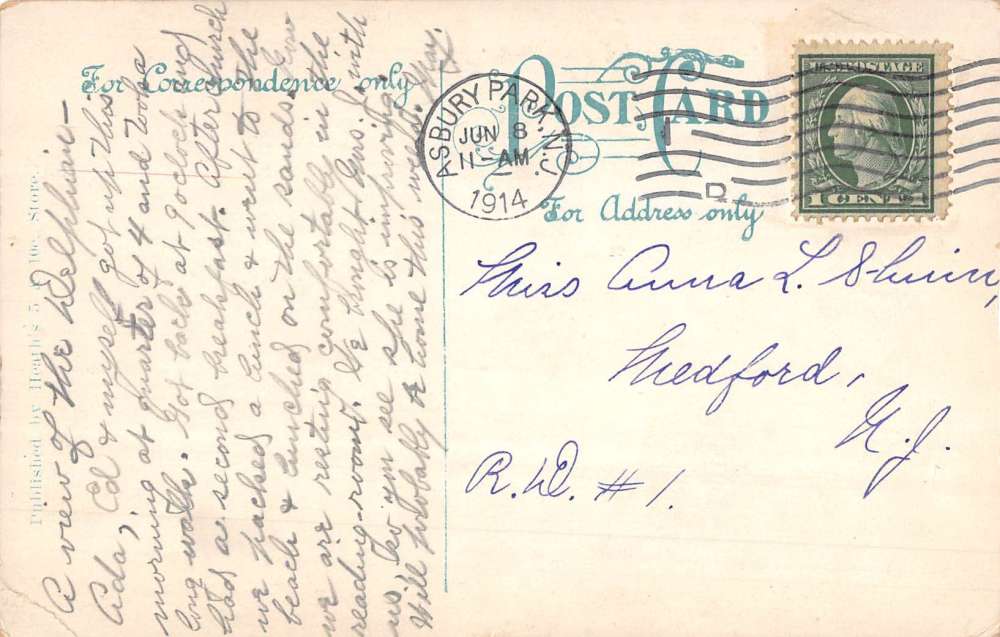 For Correspondence only
POST CARD
For Address only
ASBURY PARK, N.J.
JUN 8
11-AM
1914
D
U.S. POSTAGE
1 CENT
Miss Anna L. Shinn,
Medford,
N.J.
R.D. #1.
Published by Heath's 5 & 10c Store.
A view of the Delphian—
Ada, Ed & myself got up this
morning at quarter of 4 and took a
long walk. Got back at 9 oclock and
had a second breakfast. After church
we packed a lunch & went to the
beach & lunched on the sands. Now
we are resting comfortable in the
reading-room. We brought Gns. with
us too you see she is improving
Will probably come home this week.